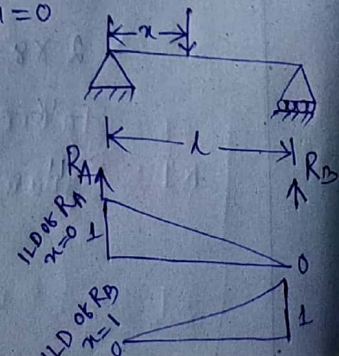 1=0
x
l
RA
RB
ILD of RA
x=0
1
0
ILD of RB
x=1
0
1